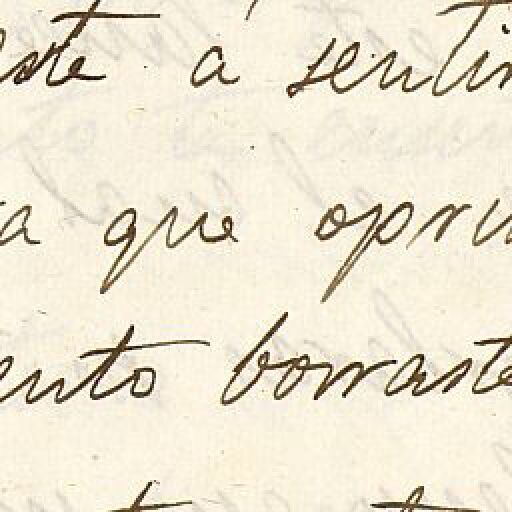 este a sentin
a que oprim
ento borraste